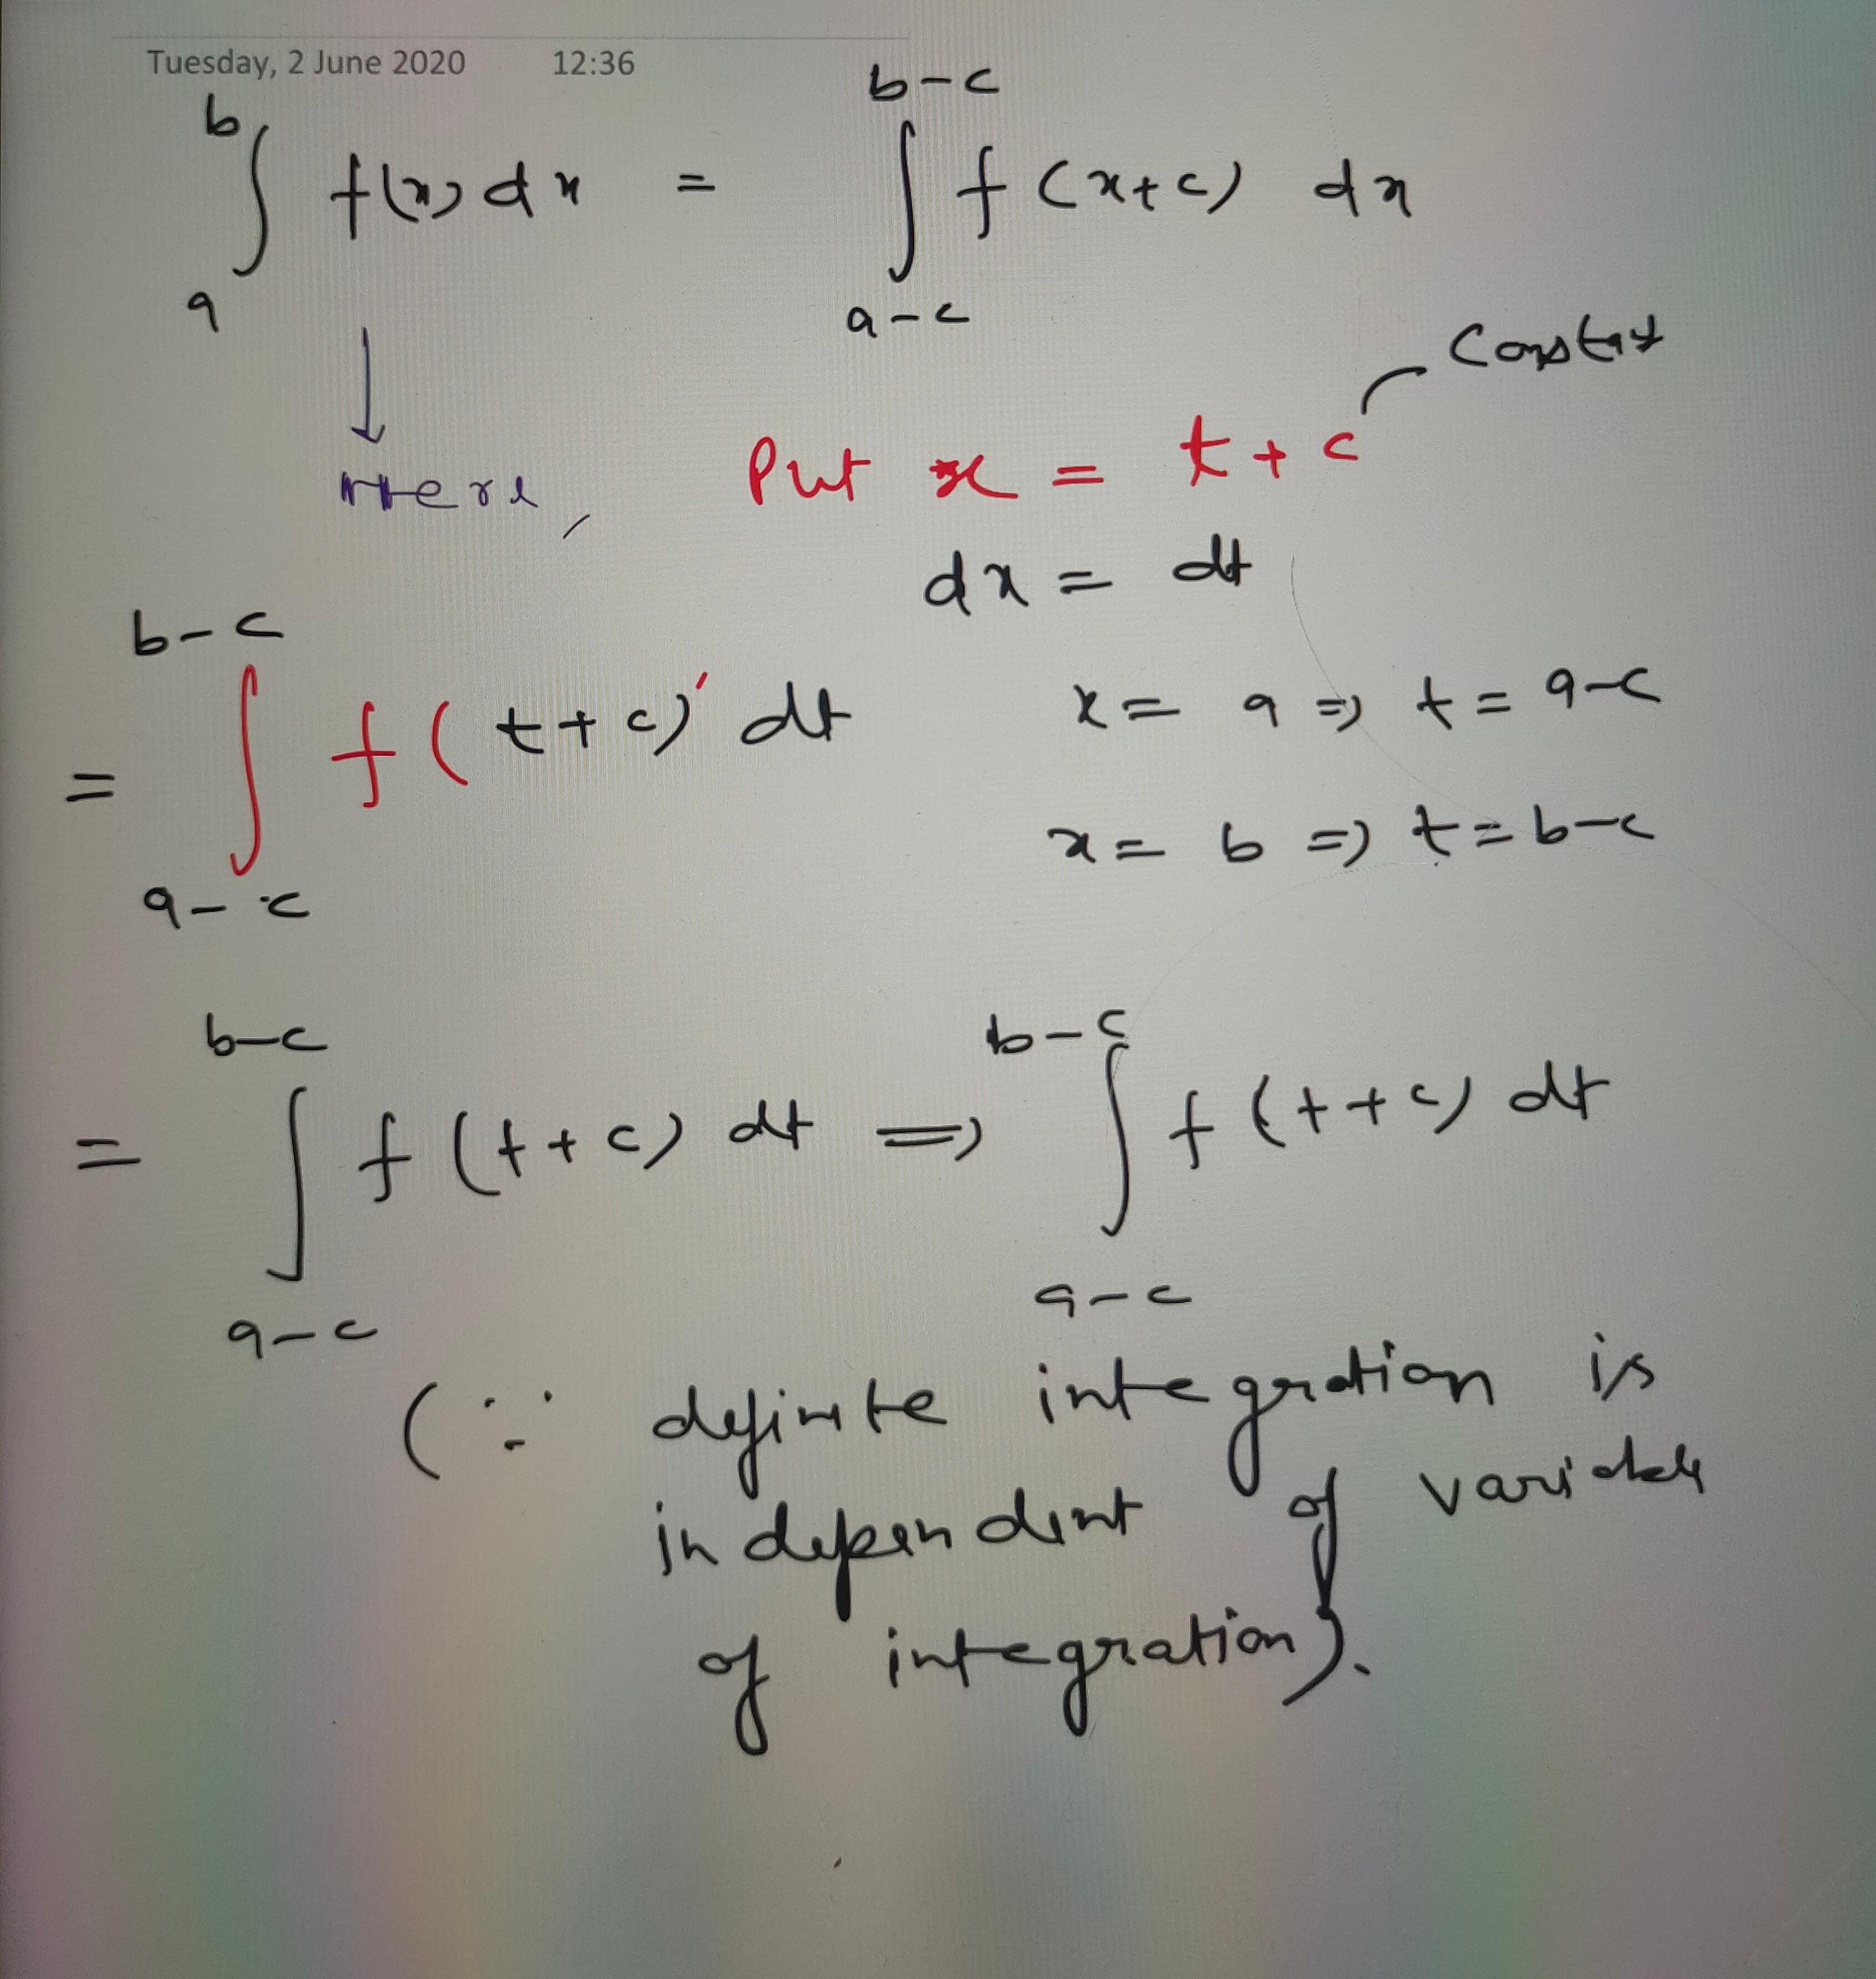 Tuesday, 2 June 2020 12:36
∫_a^b f(x) dx = ∫_{a-c}^{b-c} f(x+c) dx
Constat
Here, Put x = t + c
dx = dt
= ∫_{a-c}^{b-c} f(t+c) dt x = a => t = a-c
x = b => t = b-c
= ∫_{a-c}^{b-c} f(t+c) dt => ∫_{a-c}^{b-c} f(t+c) dt
(∵ definite integration is
independent of variable
of integration).